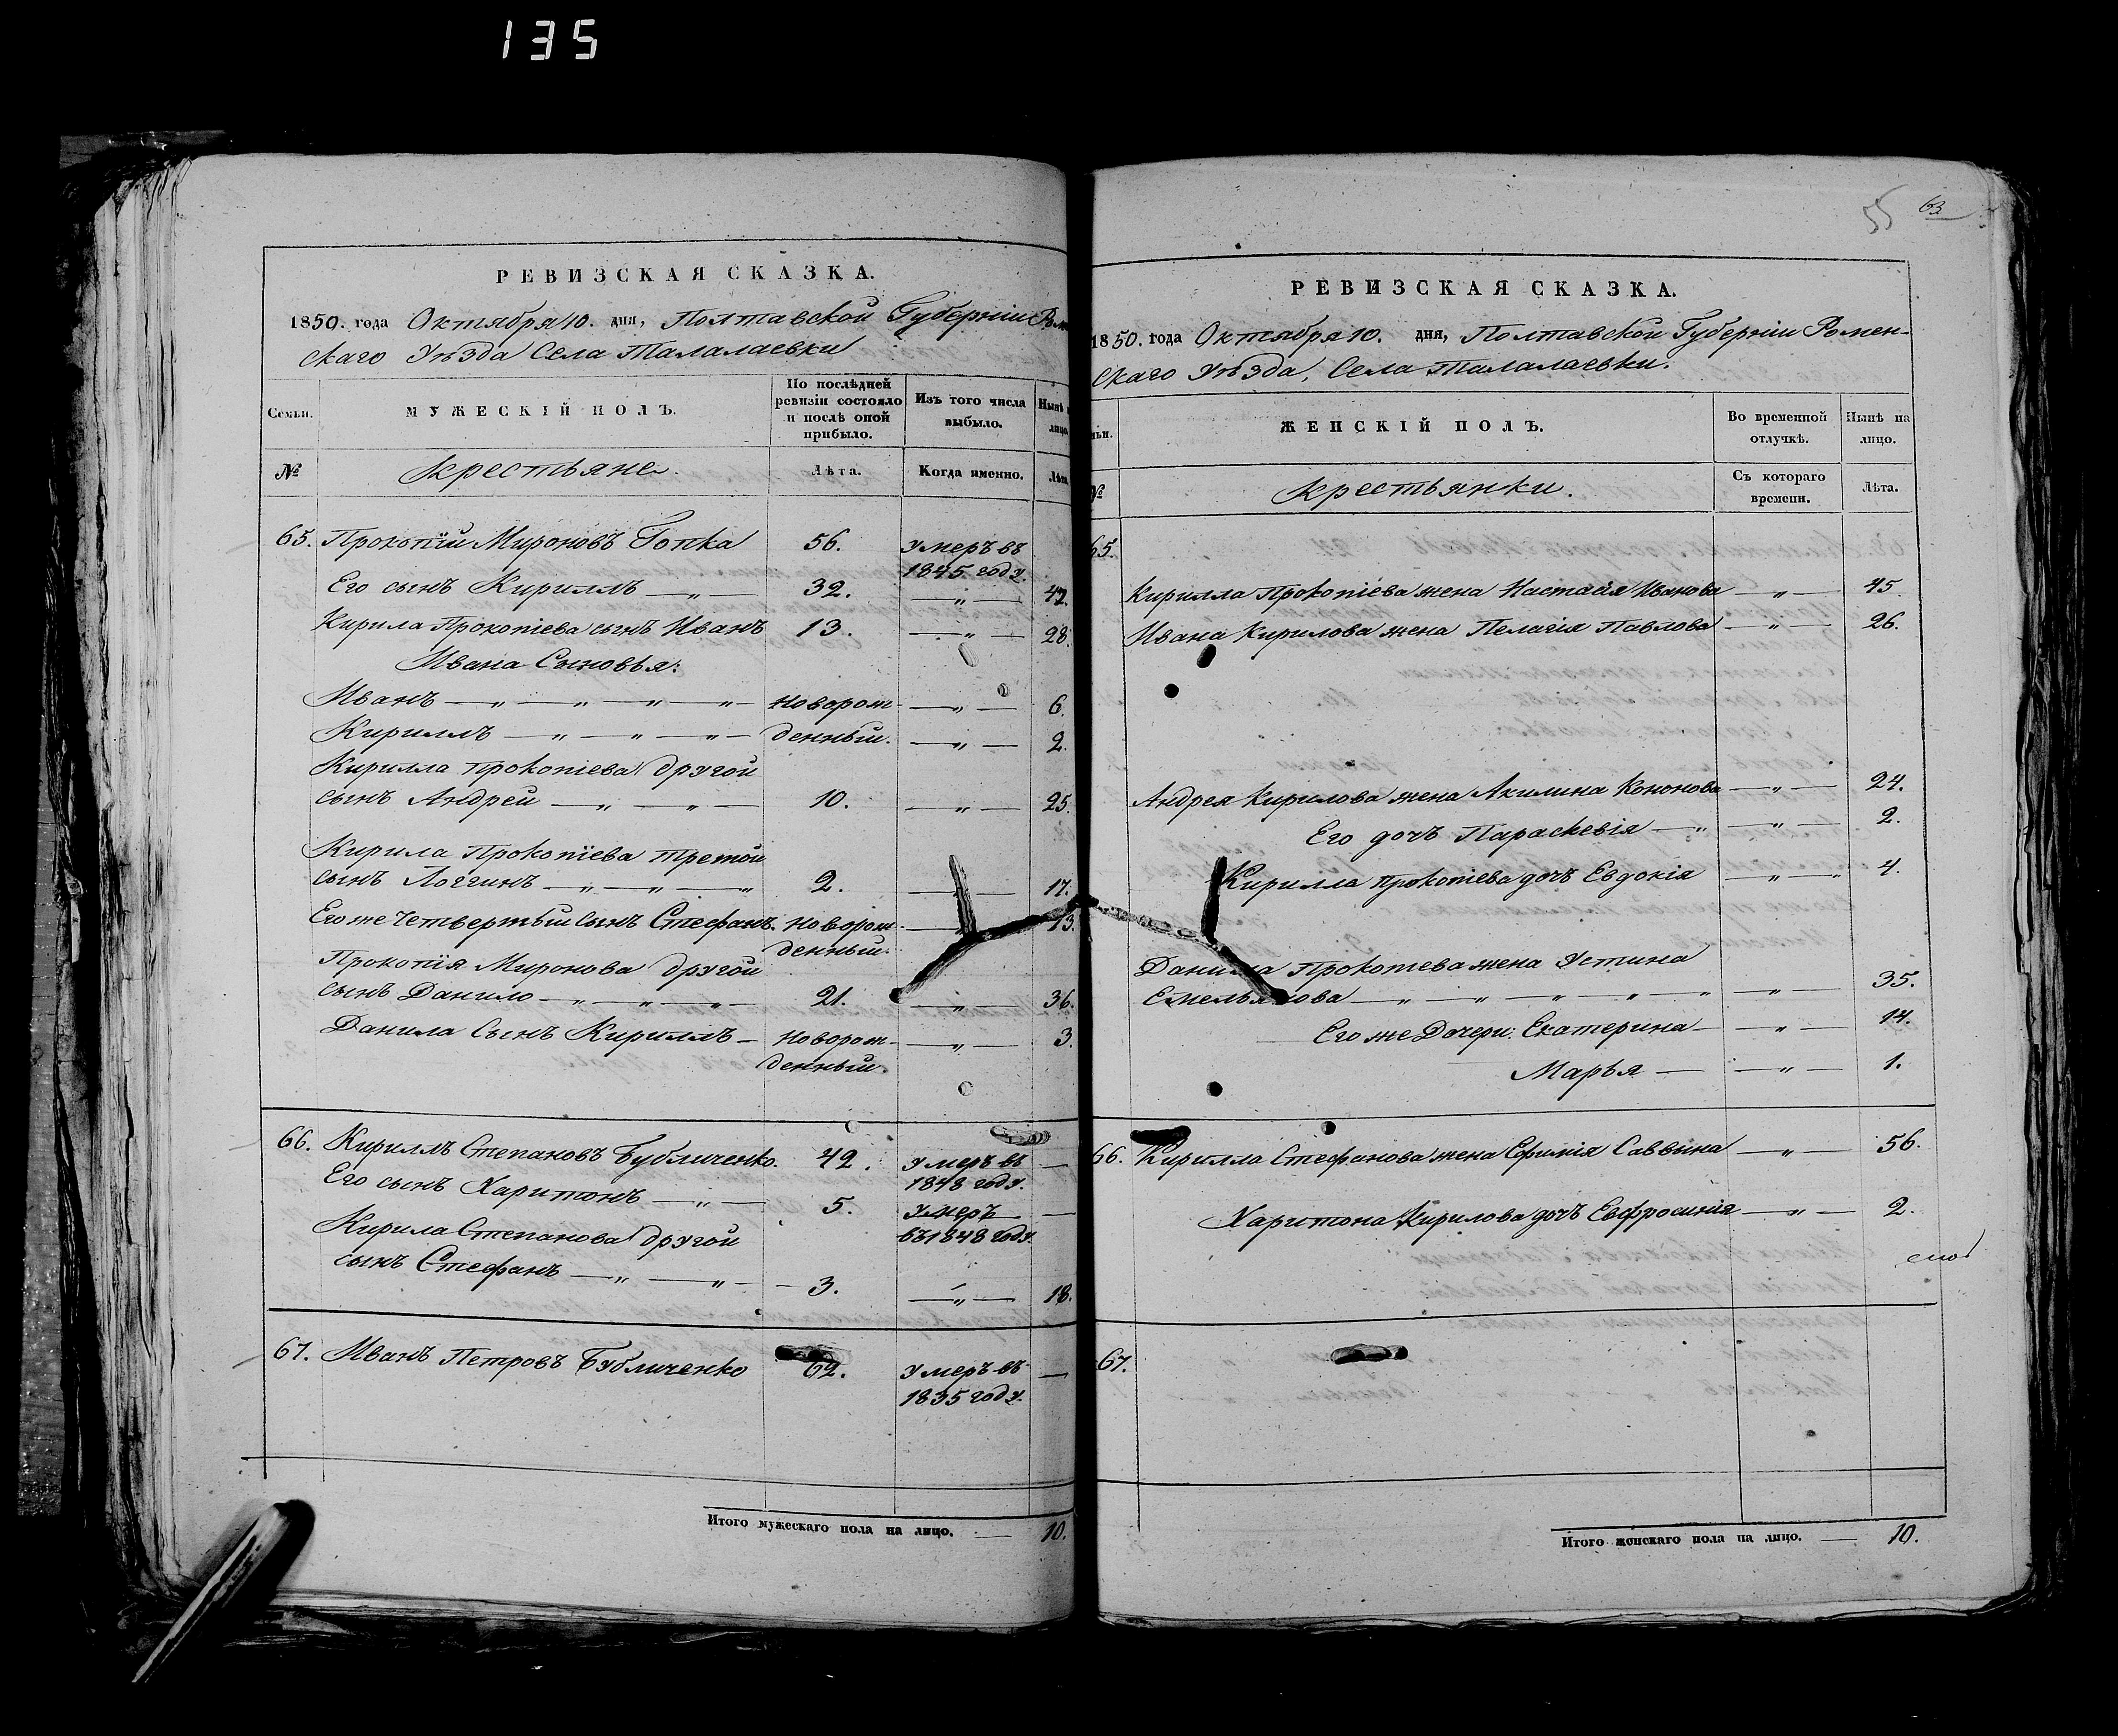 135
РЕВИЗСКАЯ СКАЗКА.
1850. года Октября 10. дня, Полтавской Губерніи Ромен
скаго Уѣзда Села Талалаевки
Семьи.
МУЖЕСКІЙ ПОЛЪ.
По послѣдней ревизіи состояло и послѣ оной прибыло.
Изъ того числа выбыло.
Нынѣ на лицо.
№
Крестьяне.
Лѣта.
Когда именно.
Лѣта.
65. Прокопій Мироновъ Гопка 56. Умеръ въ
1845 году.
Его сынъ Кириллъ — „ — 32. — „ — 42.
Кирила Прокопіева сынъ Иванъ 13. — „ — 28.
Ивана Сыновья:
Иванъ — „ — „ — „ — „ — Новорож- — „ — 6.
Кириллъ — „ — „ — „ — денный. — „ — 2.
Кирилла Прокопіева другой
сынъ Андрей — „ — „ — 10. — „ — 25.
Кирила Прокопіева третой
сынъ Логгинъ — „ — „ — „ 2. — „ — 17.
Его же четвертый сынъ Стефанъ. Новорож- 13.
денный.
Прокопія Миронова другой
сынъ Данило — „ — „ — „ — 21. — „ — 36.
Данила Сынъ Кириллъ — Новорож- — „ — 3.
денный.
66. Кириллъ Степановъ Бубличенко. 42. Умеръ въ —
1848 году.
Его сынъ Харитонъ — „ — 5. Умеръ —
въ 1848 году.
Кирила Степанова другой
сынъ Стефанъ — „ — „ — 3. — „ — 18.
67. Иванъ Петровъ Бубличенко 62. Умеръ въ —
1835 году.
Итого мужескаго пола на лицо. — 10.
55 63
РЕВИЗСКАЯ СКАЗКА.
1850. года Октября 10. дня, Полтавской Губерніи Ромен-
скаго Уѣзда, Села Талалаевки.
ьи.
ЖЕНСКІЙ ПОЛЪ.
Во временной отлучкѣ.
Нынѣ на лицо.
№
Крестьянки.
Съ котораго времени.
Лѣта.
65.
Кирилла Прокопіева жена Настасія Иванова — „ — 45.
Ивана Кирилова жена Пелагія Павлова — „ — 26.
Андрея Кирилова жена Акилина Кононова — „ — 24.
Его дочъ Параскевія — „ — „ — 2.
Кирилла Прокопіева дочъ Евдокія — „ — 4.
Данилла Прокопіева жена Устина
Емельянова — „ — „ — „ — „ — „ — „ — 35.
Его же Дочери: Екатерина — — „ — 14.
Марья — — „ — 1.
66. Кирилла Стефанова жена Ефимія Саввына — „ — 56.
Харитона Кирилова дочъ Евфросинія — „ — 2.
67.
Итого женскаго пола на лицо. — 10.